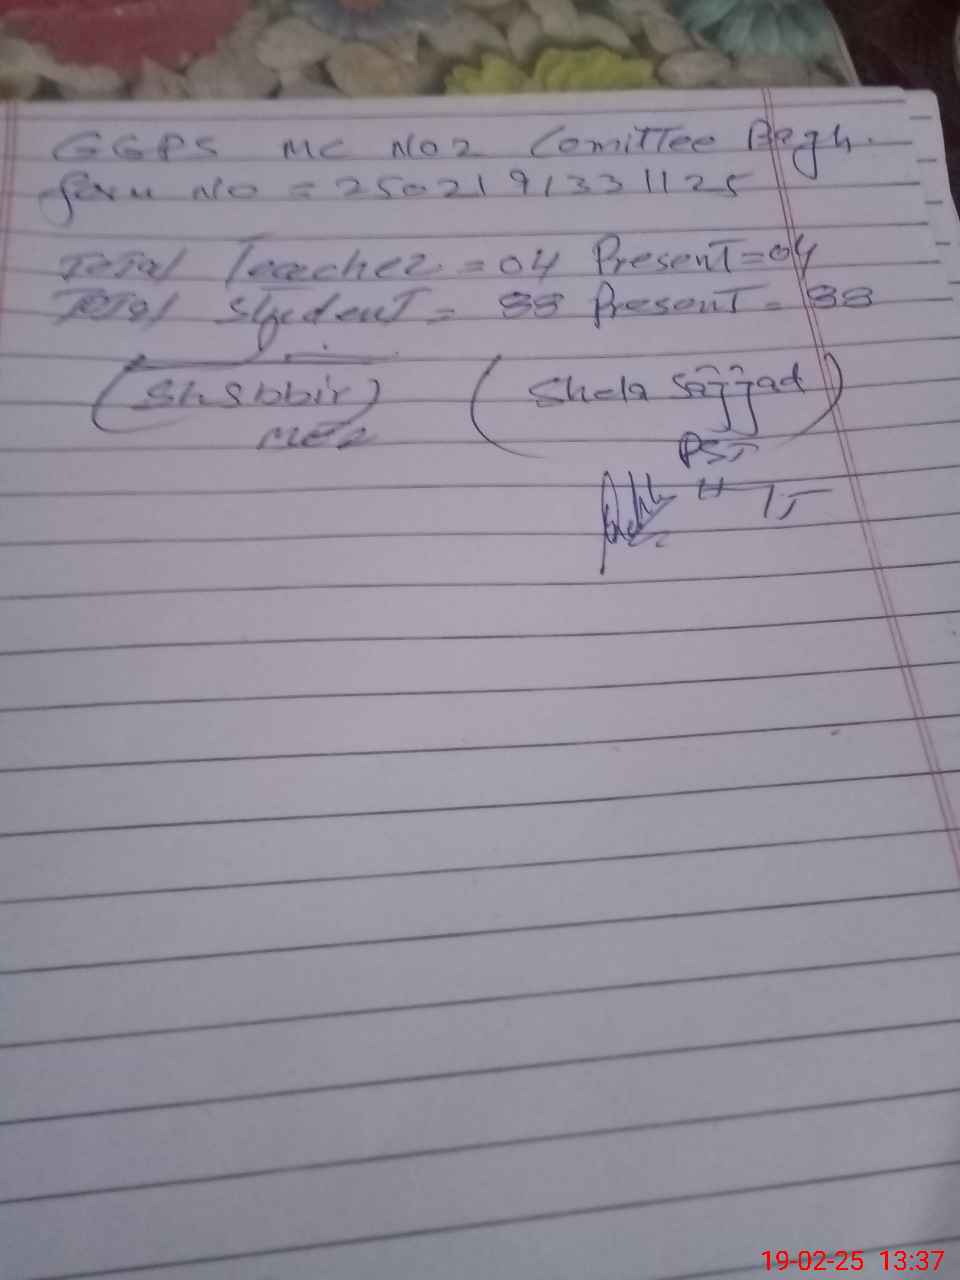 GGPS MC NO2 Comittee Bagh.
form NO = 2502191331125
Total Teacher = 04 Present = 04
Total Student = 88 Present = 88
(Shabbir) (Shela Sajjad)
PST
19-02-25 13:37